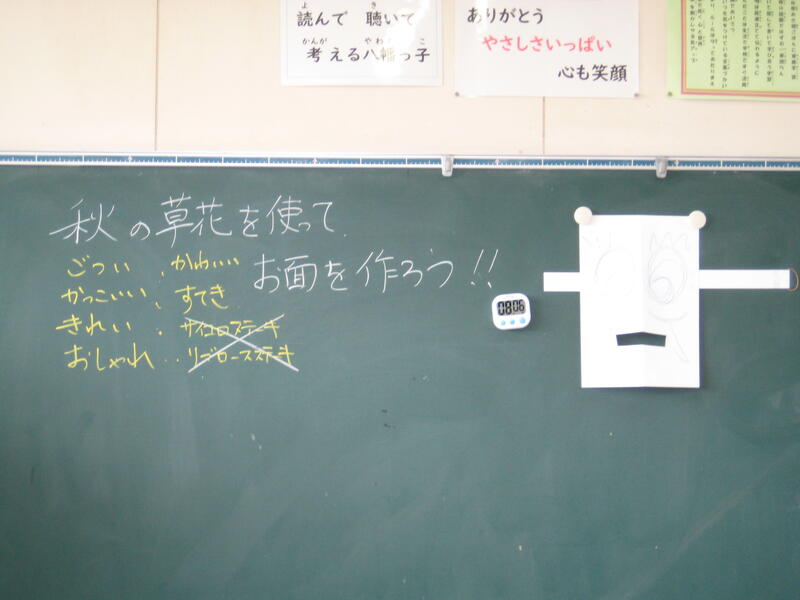 よ き
読んで 聴いて
かんが やわた こ
考える八幡っ子
ありがとう
やさしさいっぱい
心も笑顔
秋の草花を使って
お面を作ろう!!
ごつい、かわいい
かっこいい、すてき
きれい、サイコロステーキ
おしゃれ‥リブロースステーキ
0806